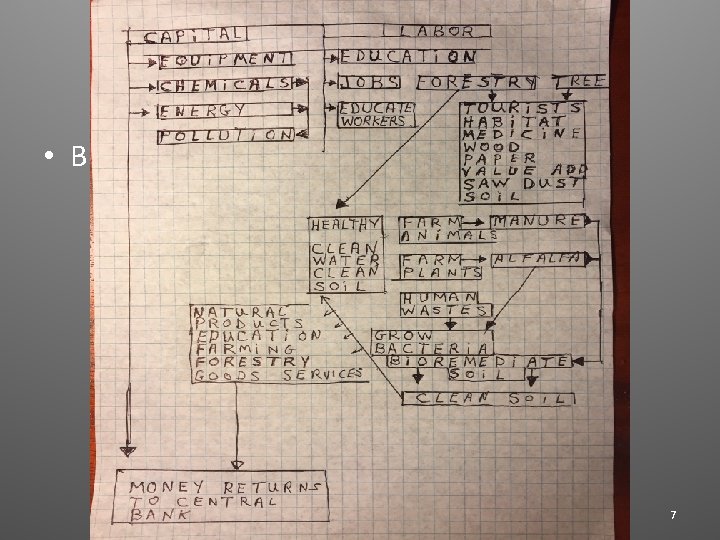 CAPITAL
LABOR
EQUIPMENT
EDUCATION
CHEMICALS
JOBS
FORESTRY TREE
ENERGY
EDUCATE
WORKERS
POLLUTION
TOURISTS
HABITAT
MEDICINE
WOOD
PAPER
VALUE ADD
SAW DUST
SOIL
• B
HEALTHY
CLEAN
WATER
CLEAN
SOIL
FARM
ANIMALS
MANURE
FARM
PLANTS
ALFALFA
HUMAN
WASTES
NATURAL
PRODUCTS
EDUCATION
FARMING
FORESTRY
GOODS SERVICES
GROW
BACTERIA
BIOREMEDIATE
SOIL
CLEAN SOIL
MONEY RETURNS
TO CENTRAL
BANK
7